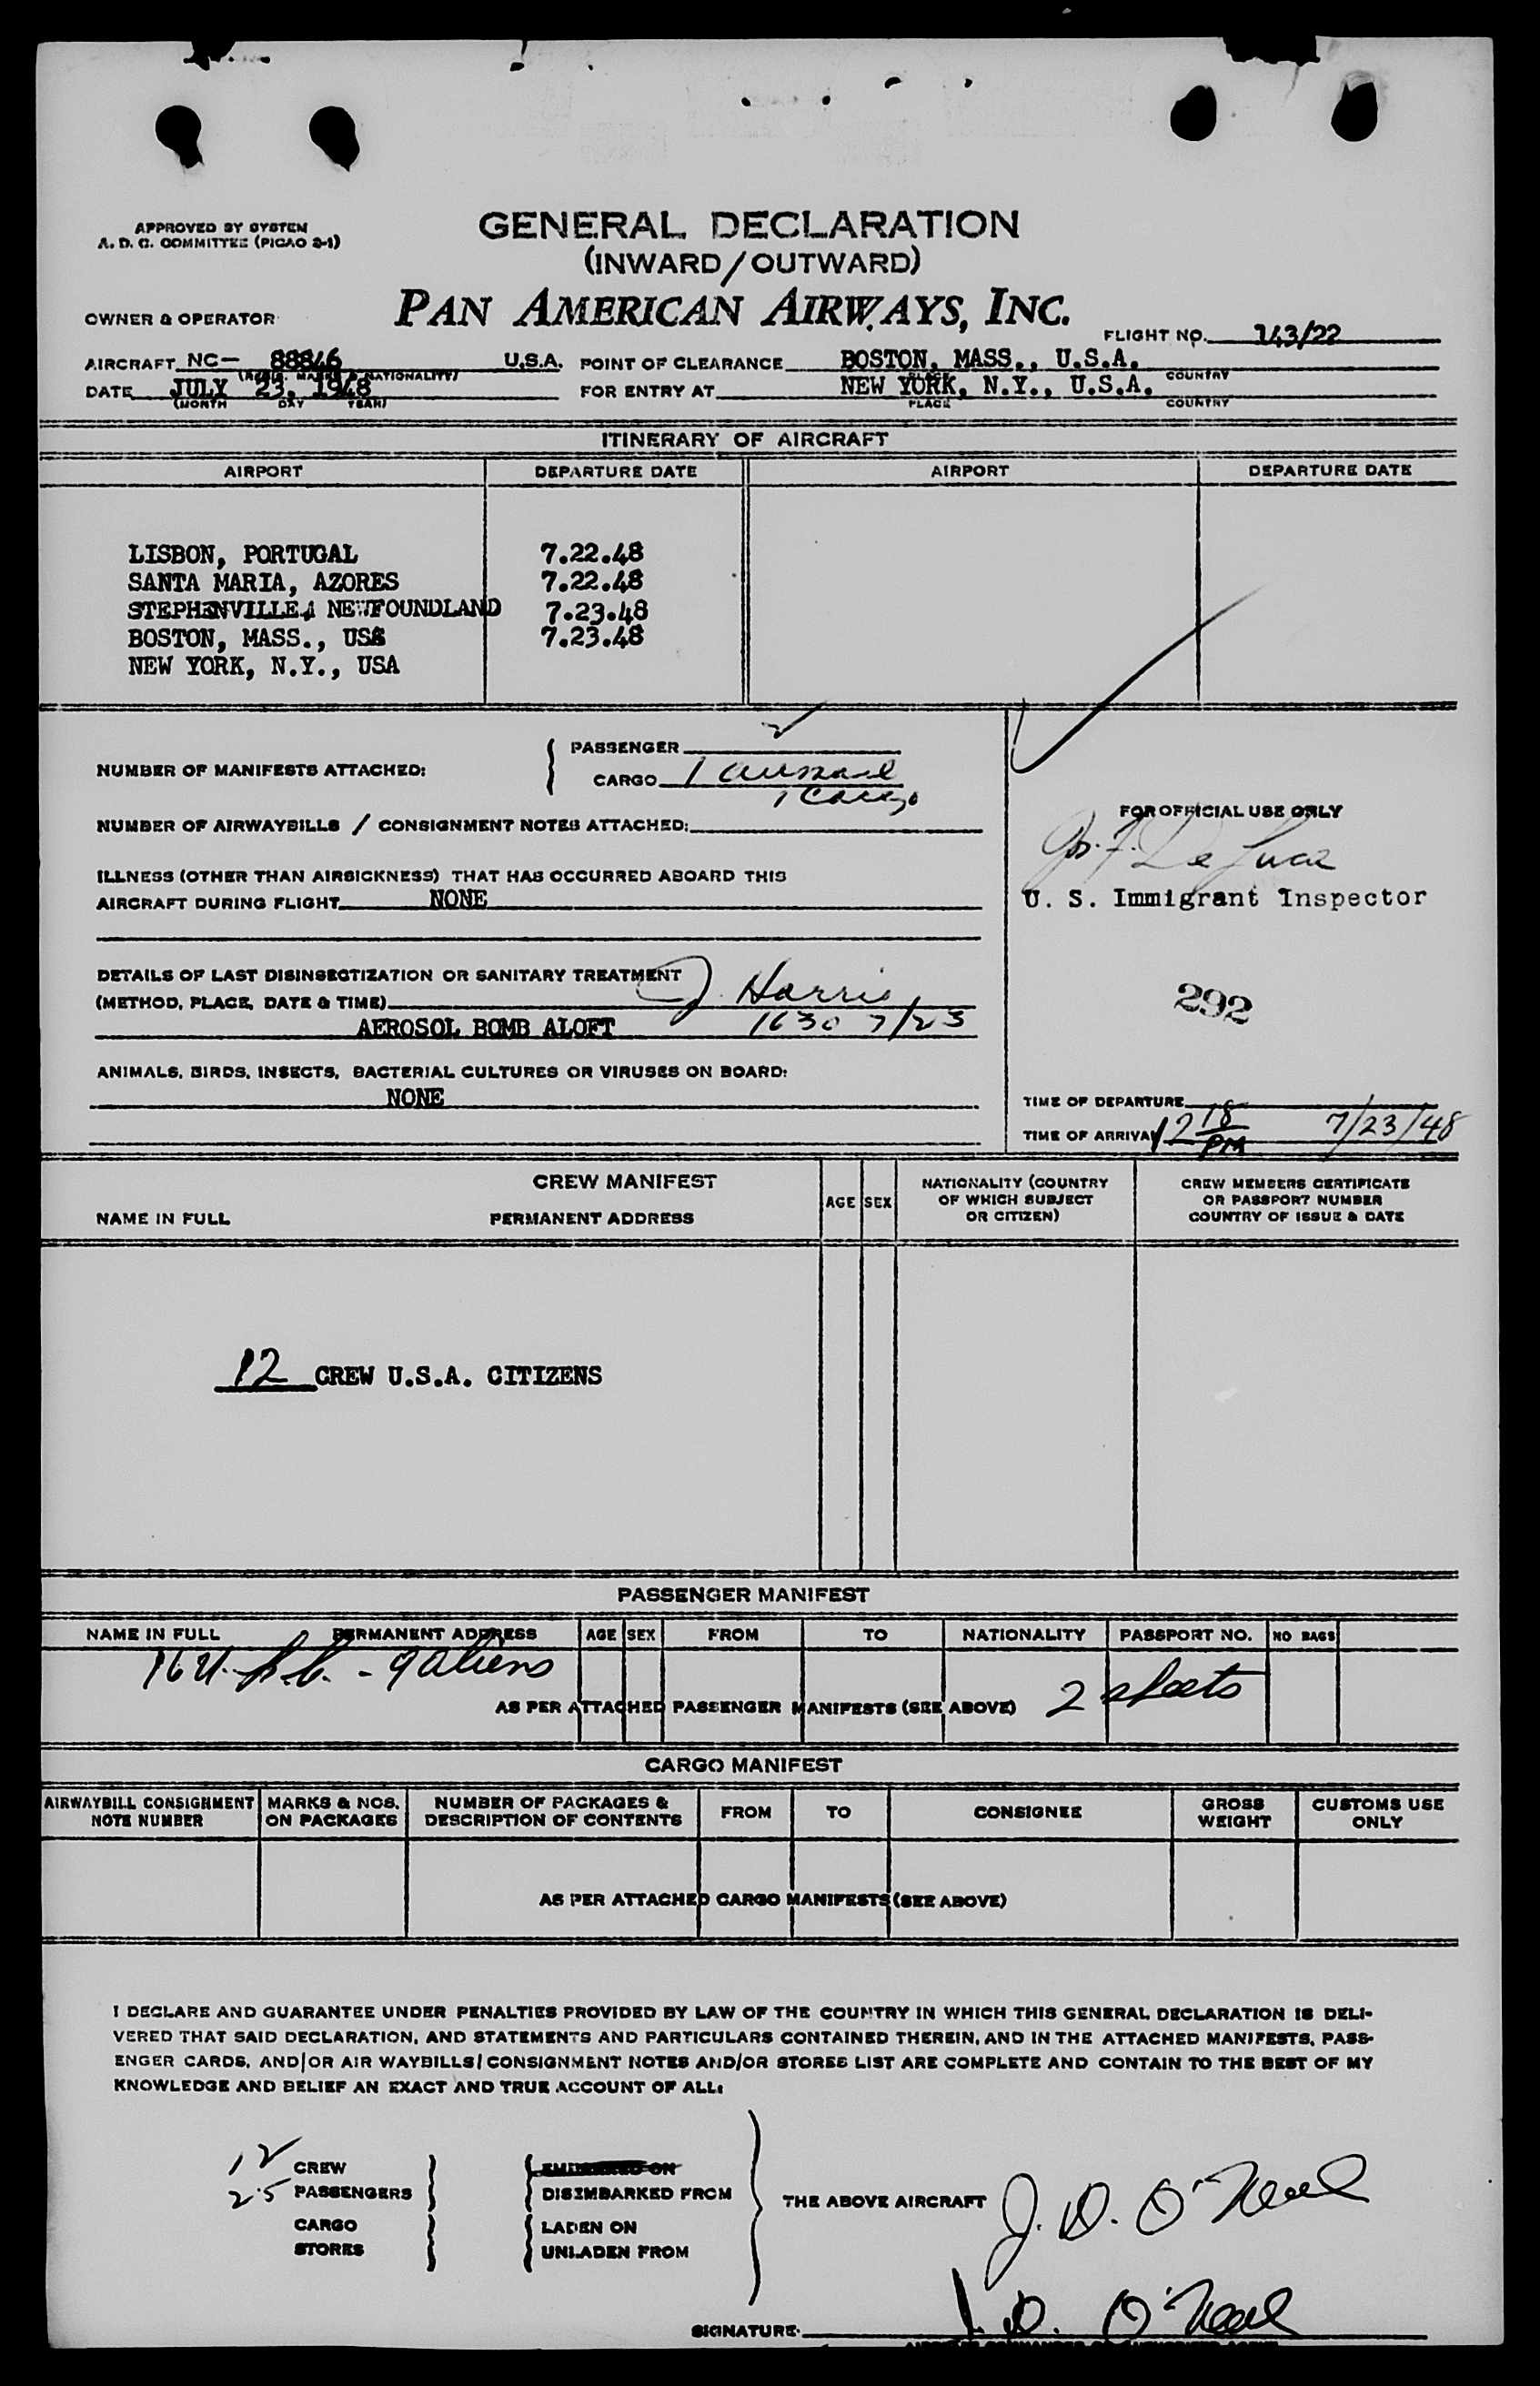 APPROVED BY SYSTEM
A. D. C. COMMITTEE (PICAO 2-1)
GENERAL DECLARATION
(INWARD/OUTWARD)
PAN AMERICAN AIRWAYS, INC.
OWNER & OPERATOR
FLIGHT NO. 143/22
AIRCRAFT NC- 88846 U.S.A. POINT OF CLEARANCE BOSTON, MASS., U.S.A.
(REGIS. MARKS & NATIONALITY) PLACE COUNTRY
DATE JULY 23, 1948 FOR ENTRY AT NEW YORK, N.Y., U.S.A.
(MONTH DAY YEAR) PLACE COUNTRY
ITINERARY OF AIRCRAFT
AIRPORT DEPARTURE DATE AIRPORT DEPARTURE DATE
LISBON, PORTUGAL 7.22.48
SANTA MARIA, AZORES 7.22.48
STEPHENVILLE, NEWFOUNDLAND 7.23.48
BOSTON, MASS., USA 7.23.48
NEW YORK, N.Y., USA
NUMBER OF MANIFESTS ATTACHED:
PASSENGER 2
CARGO 1 airmail
1 Cargo
NUMBER OF AIRWAYBILLS / CONSIGNMENT NOTES ATTACHED:
FOR OFFICIAL USE ONLY
Jos. F. De Luca
U. S. Immigrant Inspector
ILLNESS (OTHER THAN AIRSICKNESS) THAT HAS OCCURRED ABOARD THIS
AIRCRAFT DURING FLIGHT NONE
DETAILS OF LAST DISINSECTIZATION OR SANITARY TREATMENT
(METHOD, PLACE, DATE & TIME) J. Harris
AEROSOL BOMB ALOFT 1630 7/23
292
ANIMALS, BIRDS, INSECTS, BACTERIAL CULTURES OR VIRUSES ON BOARD:
NONE
TIME OF DEPARTURE
TIME OF ARRIVAL 12 18 PM 7/23/48
CREW MANIFEST
NAME IN FULL PERMANENT ADDRESS AGE SEX NATIONALITY (COUNTRY OF WHICH SUBJECT OR CITIZEN) CREW MEMBERS CERTIFICATE OR PASSPORT NUMBER COUNTRY OF ISSUE & DATE
12 CREW U.S.A. CITIZENS
PASSENGER MANIFEST
NAME IN FULL PERMANENT ADDRESS AGE SEX FROM TO NATIONALITY PASSPORT NO. NO BAGS
16 U.S.C. - 9 aliens
AS PER ATTACHED PASSENGER MANIFESTS (SEE ABOVE) 2 sheets
CARGO MANIFEST
AIRWAYBILL CONSIGNMENT NOTE NUMBER MARKS & NOS. ON PACKAGES NUMBER OF PACKAGES & DESCRIPTION OF CONTENTS FROM TO CONSIGNEE GROSS WEIGHT CUSTOMS USE ONLY
AS PER ATTACHED CARGO MANIFESTS (SEE ABOVE)
I DECLARE AND GUARANTEE UNDER PENALTIES PROVIDED BY LAW OF THE COUNTRY IN WHICH THIS GENERAL DECLARATION IS DELI-
VERED THAT SAID DECLARATION, AND STATEMENTS AND PARTICULARS CONTAINED THEREIN, AND IN THE ATTACHED MANIFESTS, PASS-
ENGER CARDS, AND/OR AIR WAYBILLS/CONSIGNMENT NOTES AND/OR STORES LIST ARE COMPLETE AND CONTAIN TO THE BEST OF MY
KNOWLEDGE AND BELIEF AN EXACT AND TRUE ACCOUNT OF ALL:
12 CREW EMBARKED ON
25 PASSENGERS DISEMBARKED FROM
THE ABOVE AIRCRAFT J. D. O'Neal
CARGO LADEN ON
STORES UNLADEN FROM
SIGNATURE J. D. O'Neal